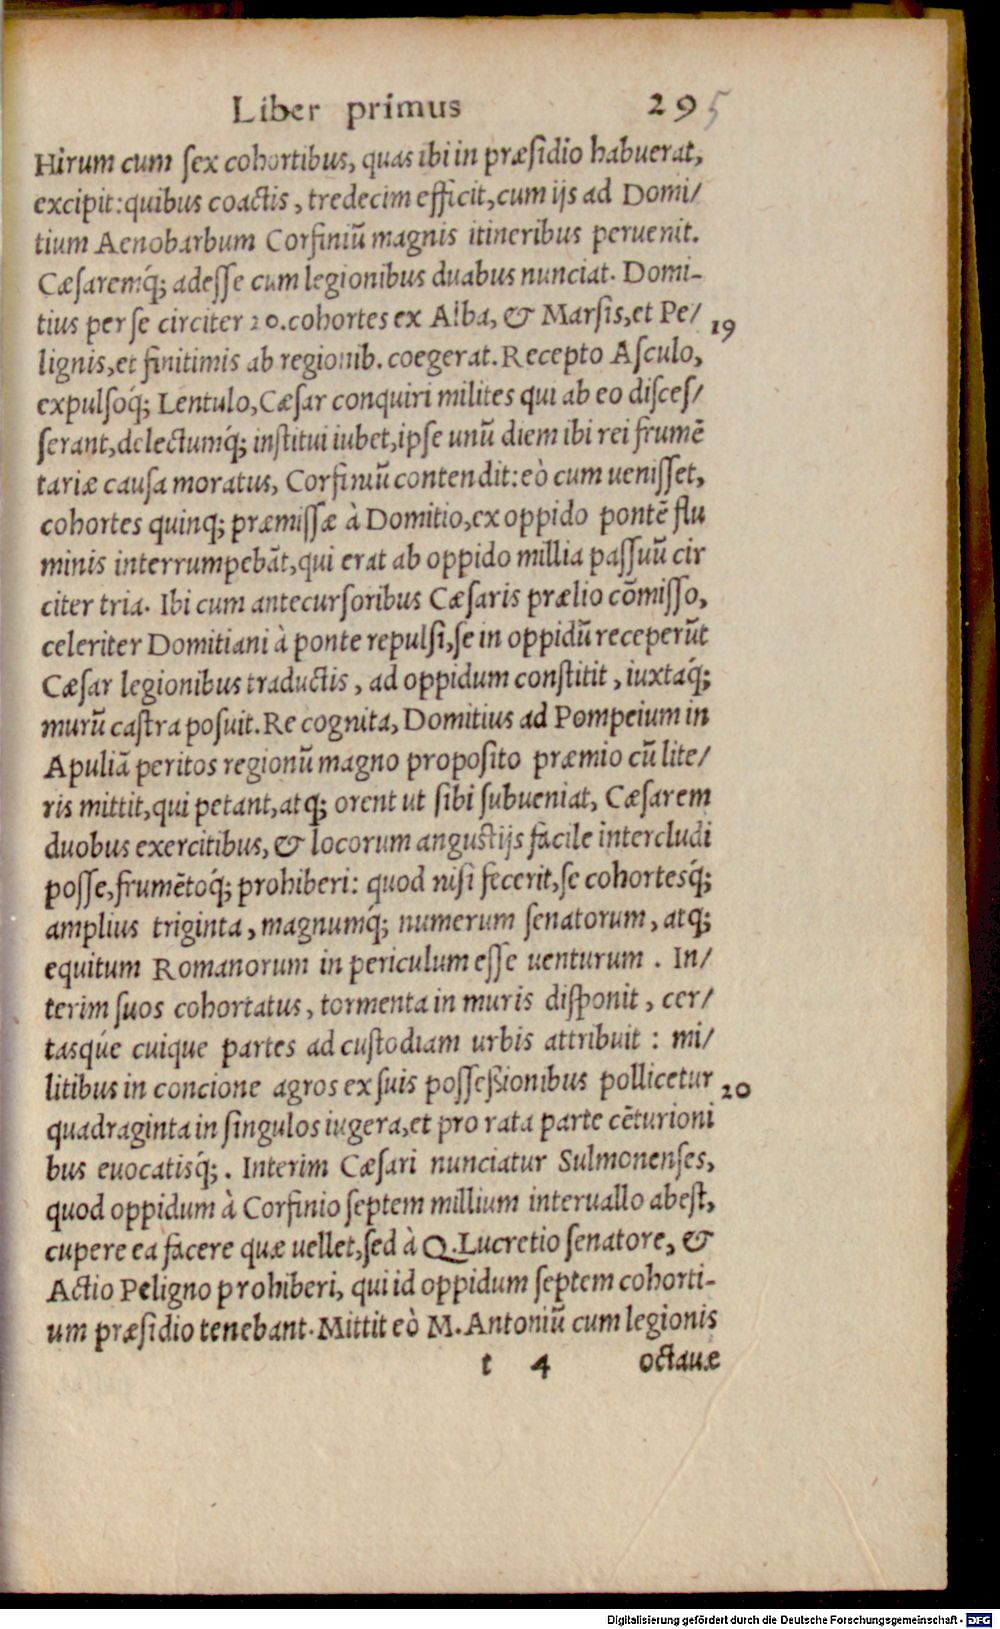 Liber primus 295
Hirum cum ſex cohortibus, quas ibi in præſidio habuerat,
excipit: quibus coactis, tredecim efficit, cum ijs ad Domi/
tium Aenobarbum Corfiniū magnis itineribus peruenit.
Cæſaremq́; adeſſe cum legionibus duabus nunciat. Domi-
tius per ſe circiter 20. cohortes ex Alba, & Marſis, et Pe/ 19
lignis, et finitimis ab regionib. coegerat. Recepto Aſculo,
expulſoq́; Lentulo, Cæſar conquiri milites qui ab eo diſceſ/
ſerant, delectumq́; inſtitui iubet, ipſe unū diem ibi rei frumē
tariæ cauſa moratus, Corfiniū contendit: eò cum ueniſſet,
cohortes quinq; præmiſſæ à Domitio, ex oppido pontē flu
minis interrumpebāt, qui erat ab oppido millia paſſuū cir
citer tria. Ibi cum antecurſoribus Cæſaris prælio cōmiſſo,
celeriter Domitiani à ponte repulſi, ſe in oppidū receperūt
Cæſar legionibus traductis, ad oppidum conſtitit, iuxtaq́;
murū caſtra poſuit. Re cognita, Domitius ad Pompeium in
Apuliā peritos regionū magno propoſito præmio cū lite/
ris mittit, qui petant, atq; orent ut ſibi ſubueniat, Cæſarem
duobus exercitibus, & locorum anguſtijs facile intercludi
poſſe, frumētoq́; prohiberi: quod niſi fecerit, ſe cohortesq́;
amplius triginta, magnumq́; numerum ſenatorum, atq;
equitum Romanorum in periculum eſſe uenturum. In/
terim ſuos cohortatus, tormenta in muris diſponit, cer/
tasqúe cuique partes ad cuſtodiam urbis attribuit: mi/
litibus in concione agros ex ſuis poſſeßionibus pollicetur 20
quadraginta in ſingulos iugera, et pro rata parte cēturioni
bus euocatisq́;. Interim Cæſari nunciatur Sulmonenſes,
quod oppidum à Corfinio ſeptem millium interuallo abeſt,
cupere ea facere quæ uellet, ſed à Q. Lucretio ſenatore, &
Actio Peligno prohiberi, qui id oppidum ſeptem cohorti-
um præſidio tenebant. Mittit eò M. Antoniū cum legionis
t 4 octauæ
Digitalisierung gefördert durch die Deutsche Forschungsgemeinschaft - DFG